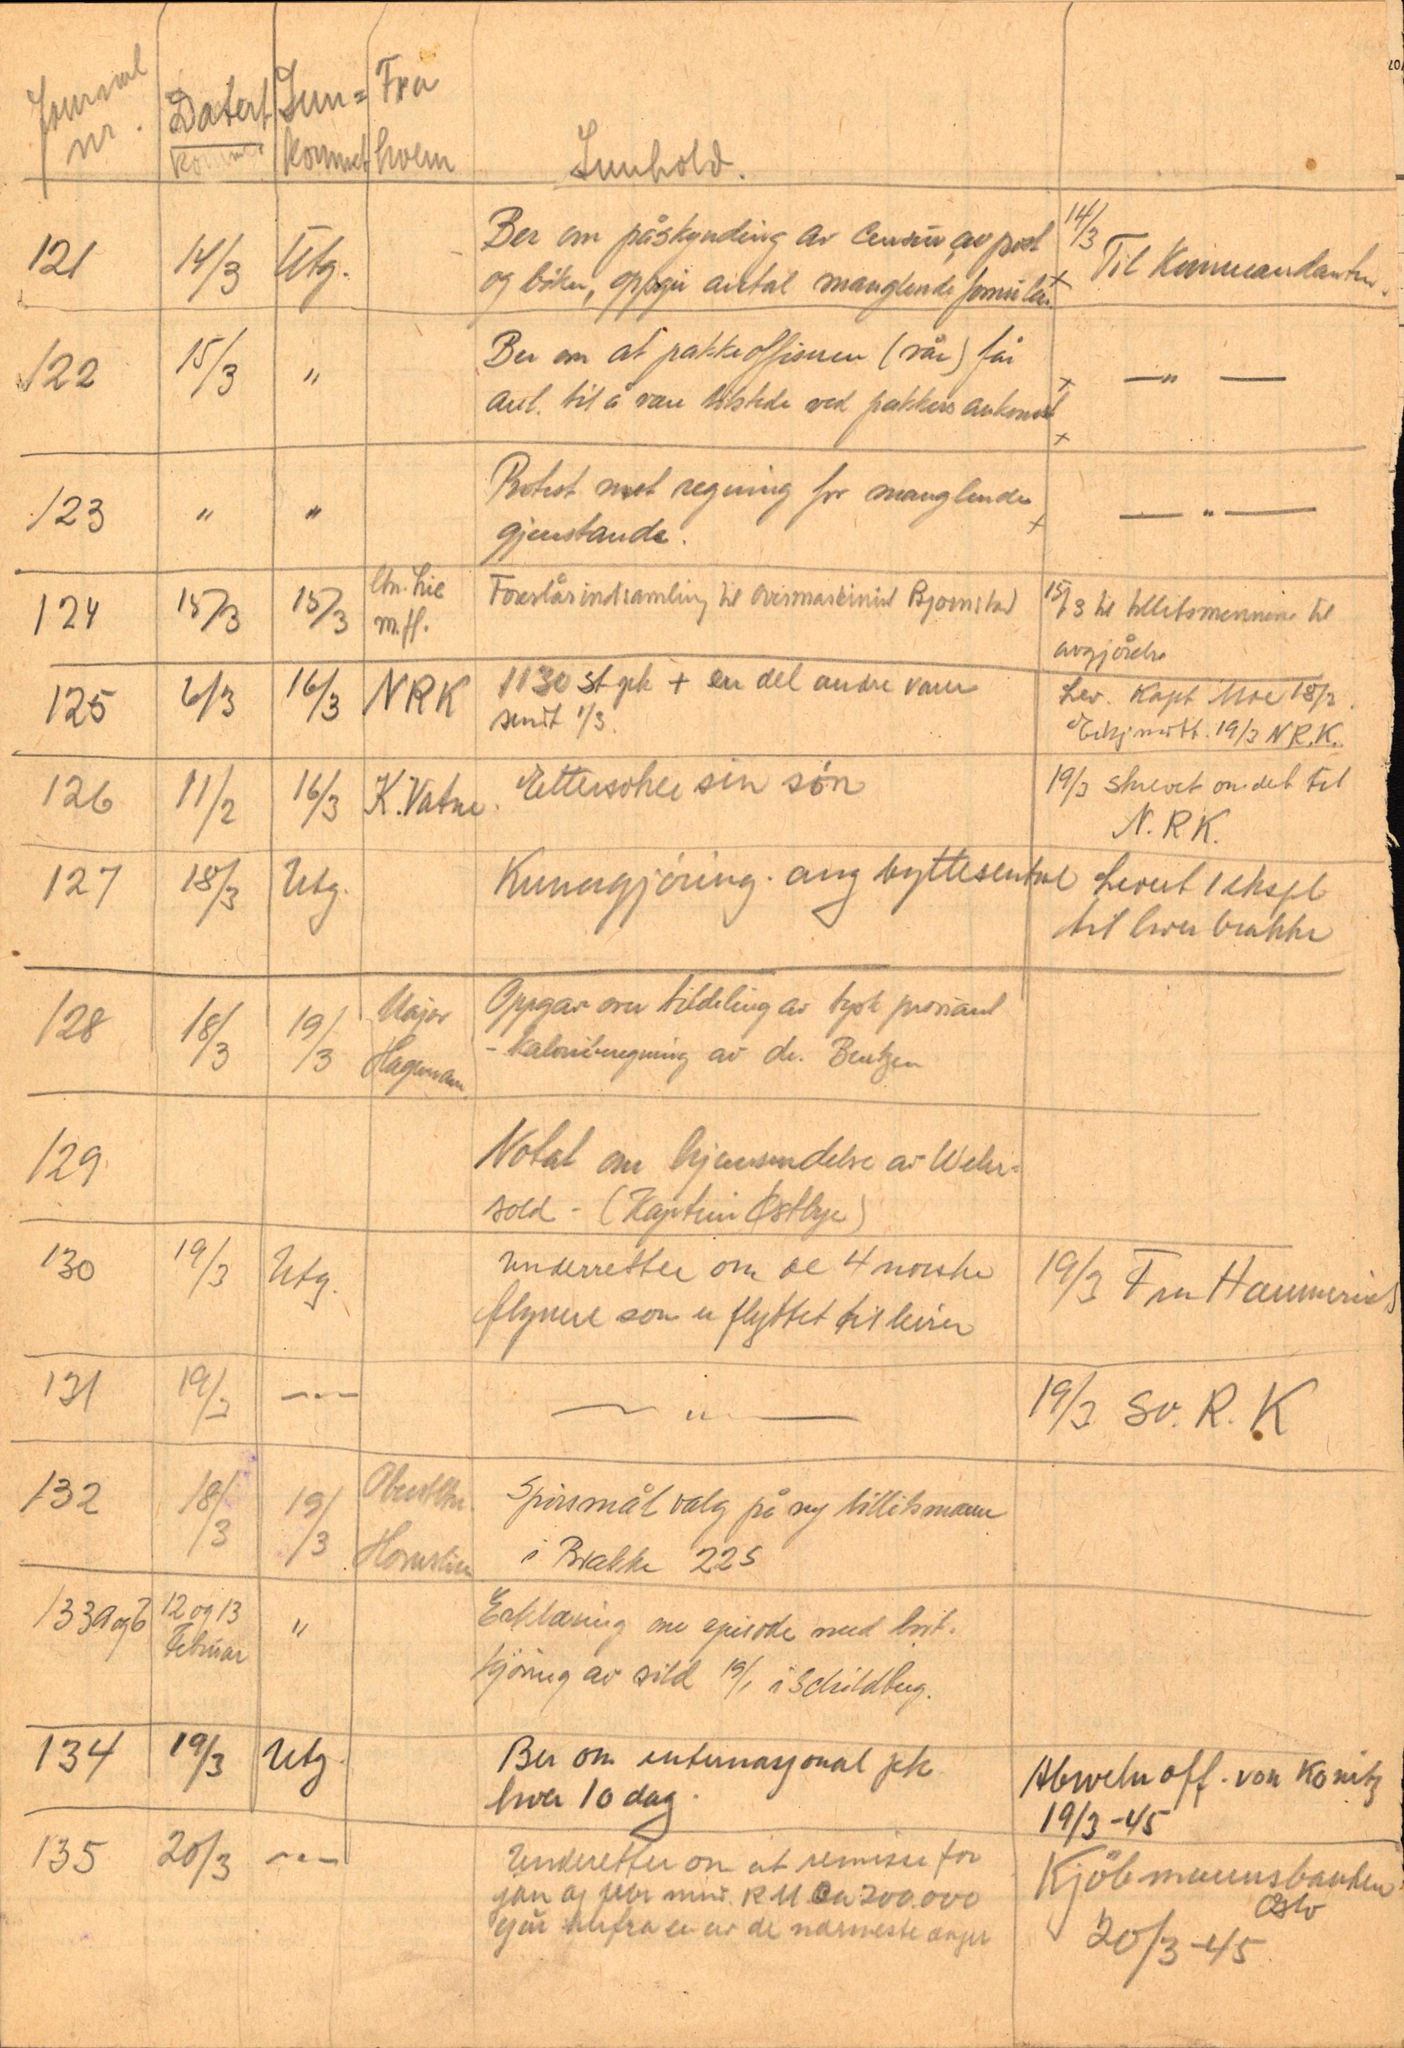 Journal nr. Datert Inn= Fra
kommet hvem Innhold.
121 14/3 Utg. Ber om påskynding av censur av post 14/3
og bøker, oppgir antal manglende formular. + Til Kommandanten.
122 15/3 " Ber om at pakkeoffiseren (vår) får + —"—
anl. til å være tilstede ved pakkers ankomst +
123 " " Protest mot regning for manglende + —"—
gjenstande.
124 15/3 15/3 ltn. Lie Foreslår indsamling til overmaskinist Bjørnstad 15/3 til tillitsmennene til
m.fl. avgjørelse
125 6/3 16/3 NRK 1130 st pk + en del andre varer Lev. Kapt Moe 18/3.
sendt 1/3. 19/3 N.R.K.
126 11/2 16/3 K. Vatne. Ettersøker sin søn 19/3 skrevet om det til
N.R.K.
127 18/3 Utg. Kunngjøring. ang byttesentral Levert 1 ekspl
til hver brakke
128 18/3 19/3 Major Oppgav over tildeling av tysk proviant
Hagemann. - kaloriberegning av dr. Bentzen
129 Notat om hjemsendelse av Wehr-
sold - (Kaptein Østbye)
130 19/3 Utg. Underretter om de 4 norske 19/3 Fru Hammerich
flyvere som er flyttet til leiren
131 19/3 —"— —"— 19/3 Sv. R. K
132 18/3 19/3 Oberstltn. Spørsmål valg på ny tillitsmann
Hornslien i Brakke 225
133 a og b 12 og 13 " Erklæring om episode med bort-
Februar kjøring av sild 19/1 i Schildberg.
134 19/3 Utg. Ber om internasjonal pk Abwehr off. von Konitz
hver 10 dag. 19/3-45
135 20/3 —"— Underetter om at remisse for Kjøbmannsbanken
jan og febr. RM ca 200.000 Oslo
går herfra en av de nærmeste dager 20/3-45